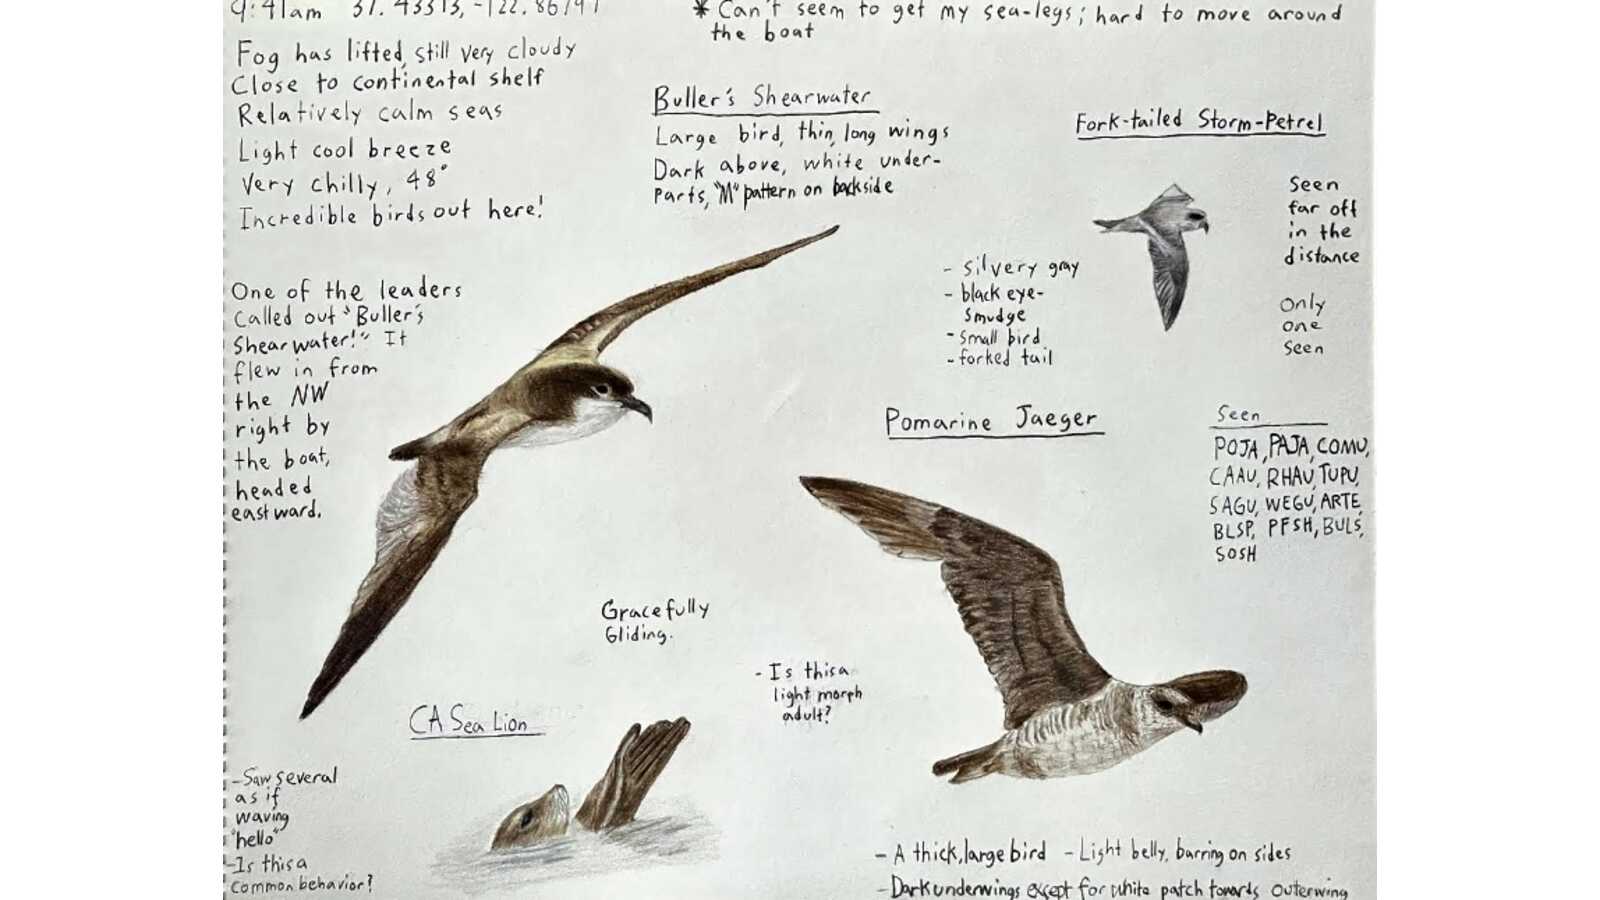 9:41am 37.43313, -122.86797
* Can't seem to get my sea-legs; hard to move around
the boat
Fog has lifted, still very cloudy
Close to continental shelf
Relatively calm seas
Light cool breeze
Very chilly, 48°
Incredible birds out here!
Buller's Shearwater
Large bird, thin, long wings
Dark above, white under-
parts, "M" pattern on backside
Fork-tailed Storm-Petrel
Seen
far off
in the
distance
Only
one
seen
- silvery gray
- black eye-
smudge
- small bird
- forked tail
One of the leaders
called out "Buller's
Shearwater!" It
flew in from
the NW
right by
the boat,
headed
eastward.
Pomarine Jaeger
Seen
POJA, PAJA, COMU,
CAAU, RHAU, TUPU,
SAGU, WEGU, ARTE,
BLSP, PFSH, BULS,
SOSH
Gracefully
Gliding.
- Is this a
light morph
adult?
CA Sea Lion
- Saw several
as if
waving
"hello"
- Is this a
common behavior?
- A thick, large bird - Light belly, barring on sides
- Dark underwings except for white patch towards outerwing